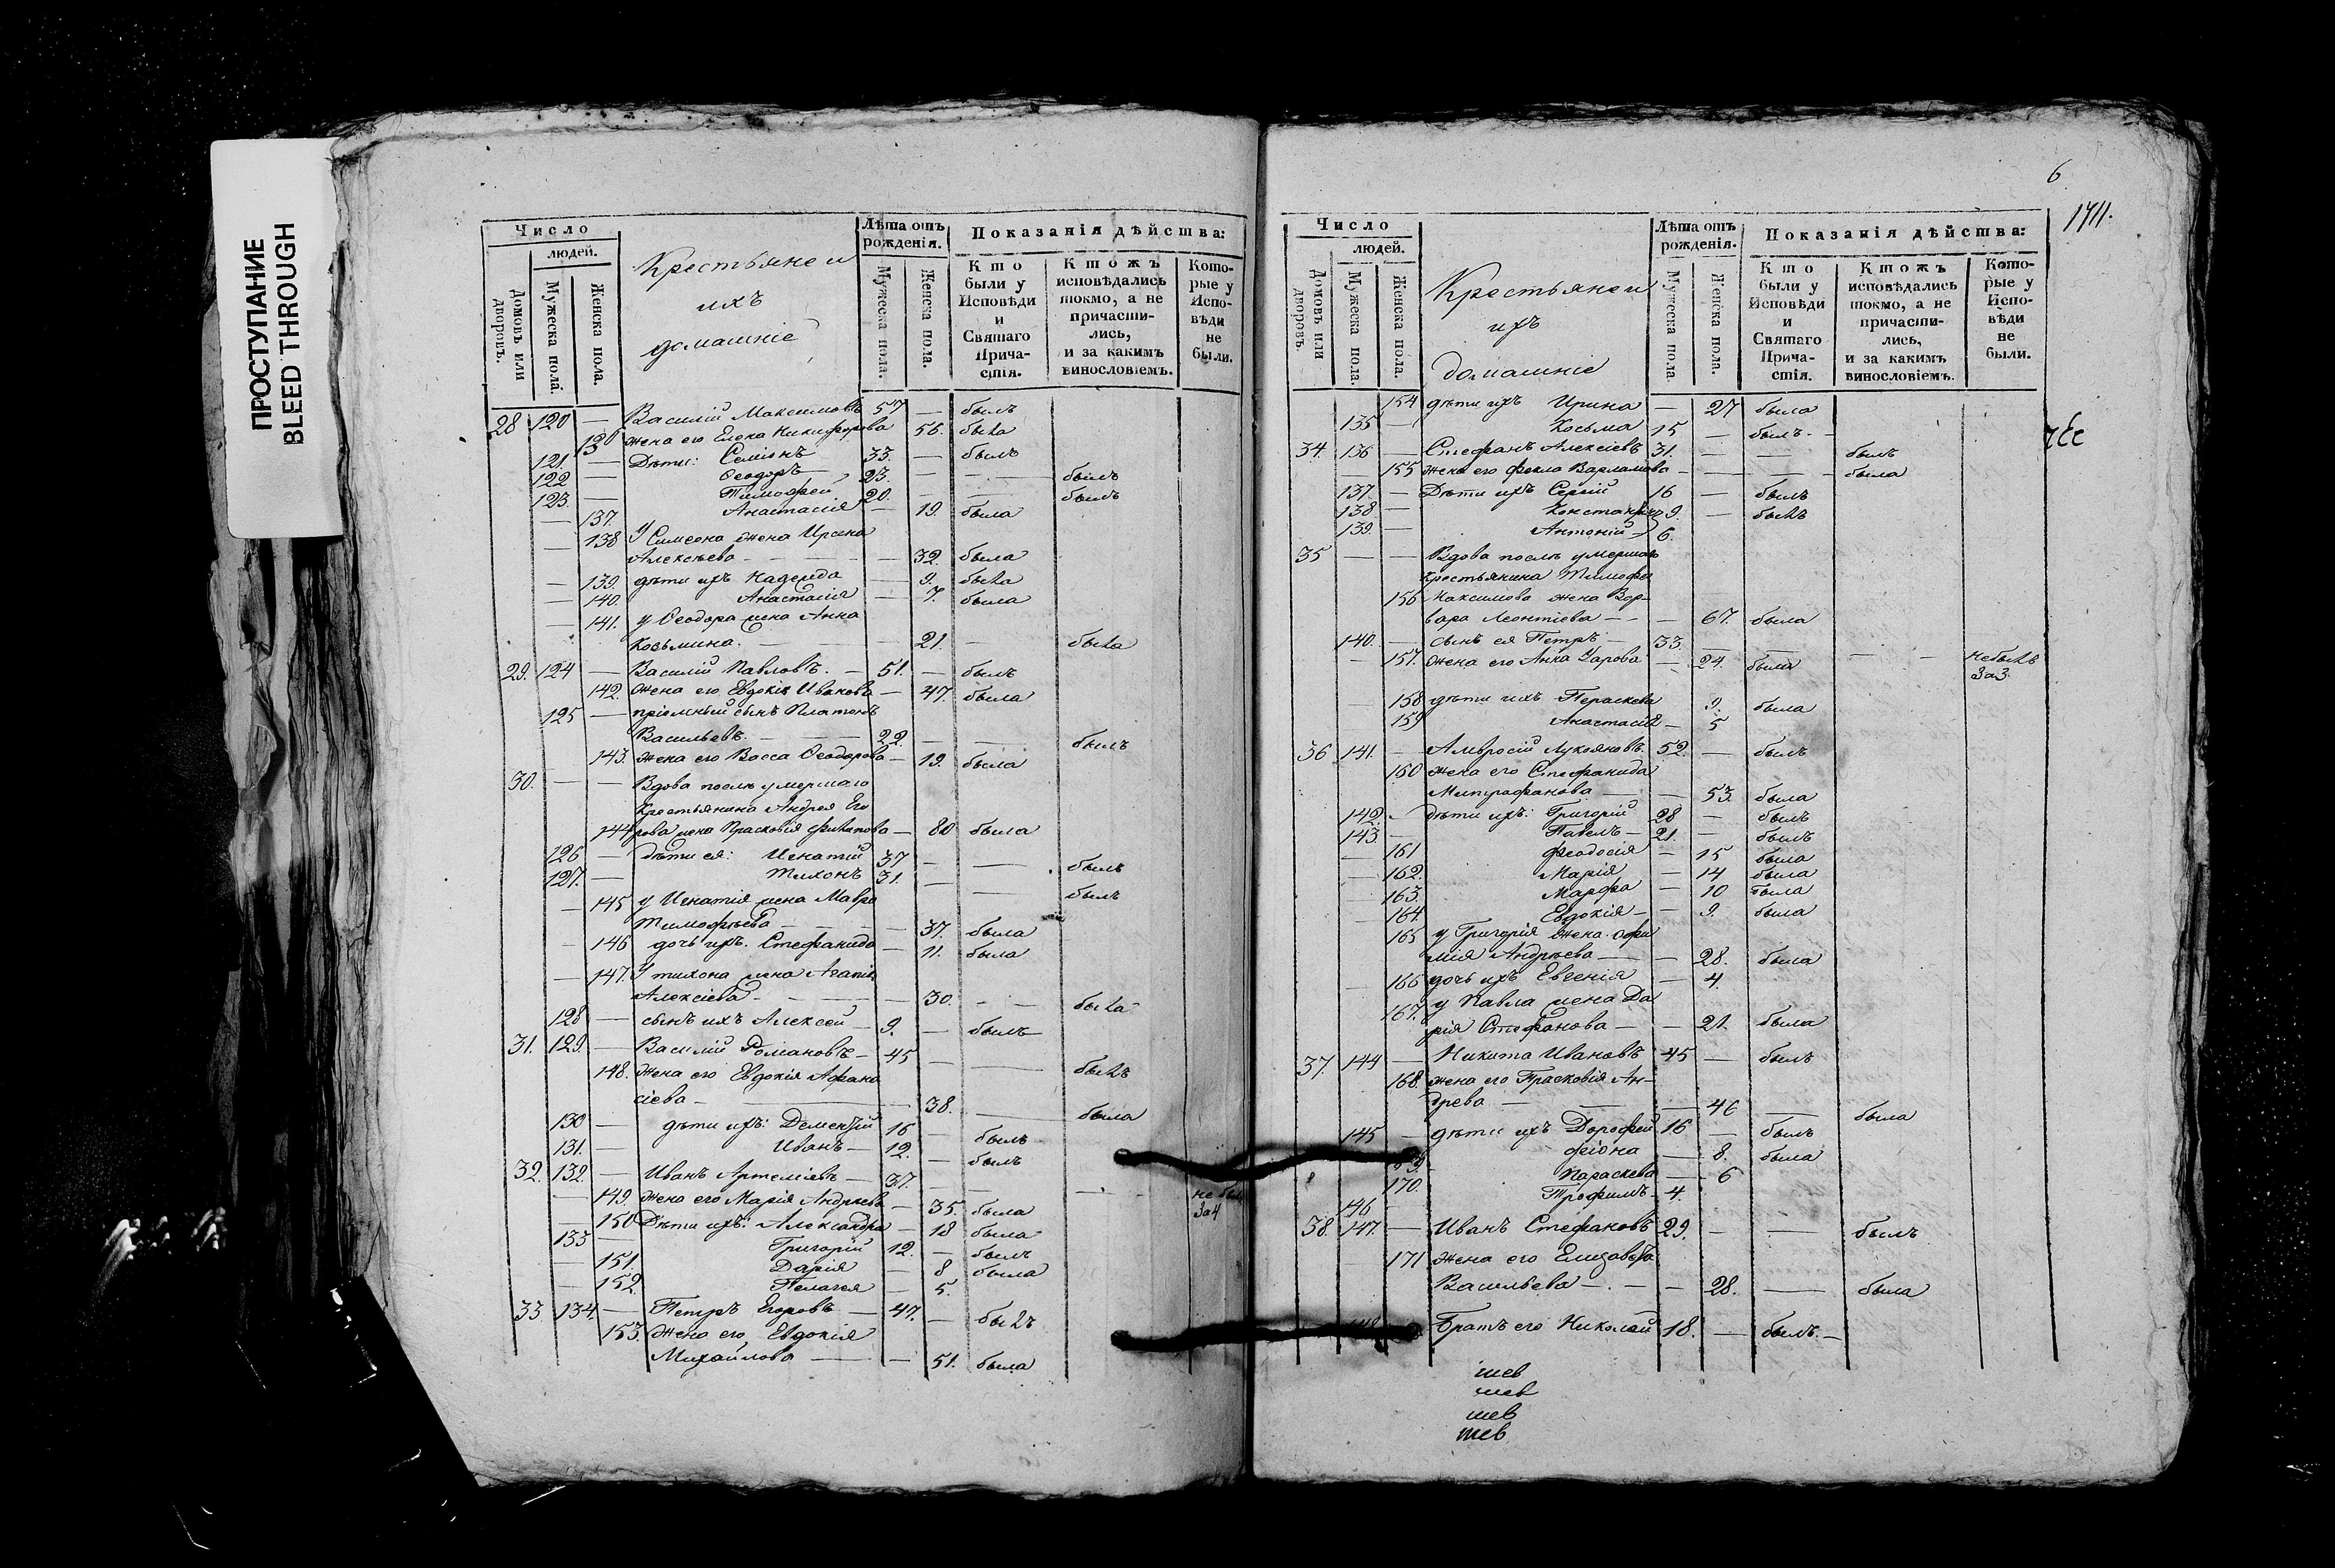 ПРОСТУПАНИЕ
BLEED THROUGH
Число
людей.
Домовъ или дворовъ.
Мужеска пола.
Женска пола.
Крестьяне и
ихъ
домашніе
Лѣта отъ рожденія.
Мужеска пола.
Женска пола.
Показанія дѣйства:
Кто были у Исповѣди и Святаго Причастія.
Ктожъ исповѣдались токмо, а не причастились, и за какимъ винословіемъ.
Которые у Исповѣди не были.
28 120 — Василій Максимовъ 57 — былъ
136 жена его Елена Никифорова 56. была
121. — Дѣти: Семіонъ 33. — былъ
122 — Ѳеодоръ 23. — — былъ
123. — Тимоѳей 20. — — былъ
— 137. Анастасія — 19. была
— 138 У Симеона жена Ирина
Алексѣева — — 32. была
— 139. дѣти ихъ Надежда — 9. была
— 140. Анастасія — 7. была
— 141. у Ѳеодора жена Анна
Козьмина. — 21. — была
29. 124 — Василій Павловъ. — 51. — былъ
142. жена его Евдокія Иванова — 47. была
125 — пріемный сынъ Платонъ
Васильевъ. — 22. — — былъ
143. жена его Васса Ѳеодорова — 19. была
30. — — Вдова послѣ умершаго
Крестьянина Андрея Его
144 рова жена Прасковія Филипова — 80 была
126 — дѣти ея: Игнатій 37 — — былъ
127. — Тихонъ 31. — — былъ
— 145 у Игнатія жена Мавра
Тимофѣева — — 37. была
— 146 дочь ихъ. Стефанида — 11. была
— 147. У тихона жена Агапія
Алексіева — — 30. — была
128 — сынъ ихъ Алексей — 9. — былъ
31. 129. — Василій Романовъ — 45 — — былъ
148. жена его Евдокія Афана
сіева — 38. — была
130 — дѣти ихъ: Дементій 16 — былъ
131. — Иванъ — 12. — былъ
32. 132. — Иванъ Артеміевъ — 37. — — — не был
За4
— 149. жена его Марія Андреева — 35. была
— 150 Дѣти ихъ: Александра — 18 была
133 — Григорій 12. — былъ
— 151. Дарія — 8 была
— 152. Пелагея — 5.
33 134. — Петръ Егоровъ — 47. — былъ
153. жена его, Евдокія
Михайлова — — 51. была
6
1711.
Число
людей.
Домовъ или дворовъ.
Мужеска пола.
Женска пола.
Крестьяне и
ихъ
домашніе
Лѣта отъ рожденія.
Мужеска пола.
Женска пола.
Показанія дѣйства:
Кто были у Исповѣди и Святаго Причастія.
Ктожъ исповѣдались токмо, а не причастились, и за какимъ винословіемъ.
Которые у Исповѣди не были.
154 дѣти ихъ Ирина — 27 была
135 — Косьма 15 — былъ. —
34. 136 — Стефанъ Алексіевъ 31. — — былъ
155 жена его Фекла Варламова — — — была
137. — Дѣти ихъ Сергій 16 — былъ
138 — 9. — былъ
139. — Антоній — 6.
35 — — Вдова послѣ умершаго
Крестьянина Тимофея
156 Максимова жена Вар-
вара Леонтіева — — — 67. была
140. — сынъ ея Петръ — 33. — — — небылъ
За3.
— 157. жена его Анна Уарова — 24. была
158 дѣти ихъ Параскева 9. была
159 Анастасія — 5
36 141. — Амвросій Лукояновъ. 52. — былъ
160 жена его Стефанида
Митрофанова — — 53. была
142. — дѣти ихъ: Григорій 28 — былъ
143. — Павелъ — 21. — былъ
— 161 Феодосія — 15 была
— 162. Марія — 14 была
163. Марфа — 10 была
— 164. Евдокія — — 9. была
165 у Григорія жена Офи
мія Андрѣева — — 28. была
— 166 дочь ихъ Евгенія — 4.
167. у Павла жена Да
рія Стефанова — — 21. была
37. 144 — Никита Ивановъ 45 — былъ
168. жена его Прасковія Ан-
древа — — — 46 — была
145 — дѣти ихъ Дорофей 16 — былъ
— 8. была
170. Параскева — 6
146 — Трофимъ — 4.
38. 147. — Иванъ Стефановъ 29. — — былъ
171 жена его Елизавета
Васильева — . — — 28. — была
148 Братъ его Николай 18. — былъ. —
шев
шев
шев
шев